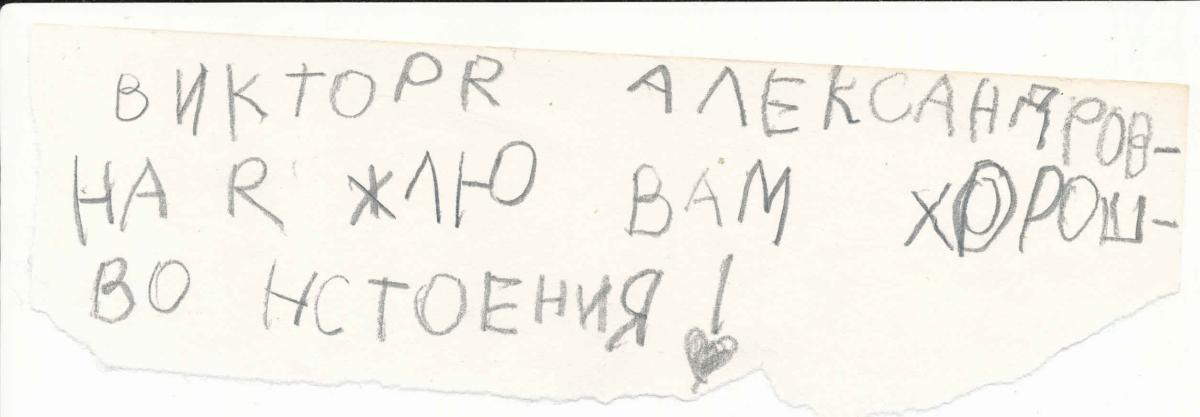 ВИКТОРR АЛЕКСАНДРОВ-
НА R ЖЛЮ ВАМ ХОРОШ-
ВО НСТОЕНИЯ!